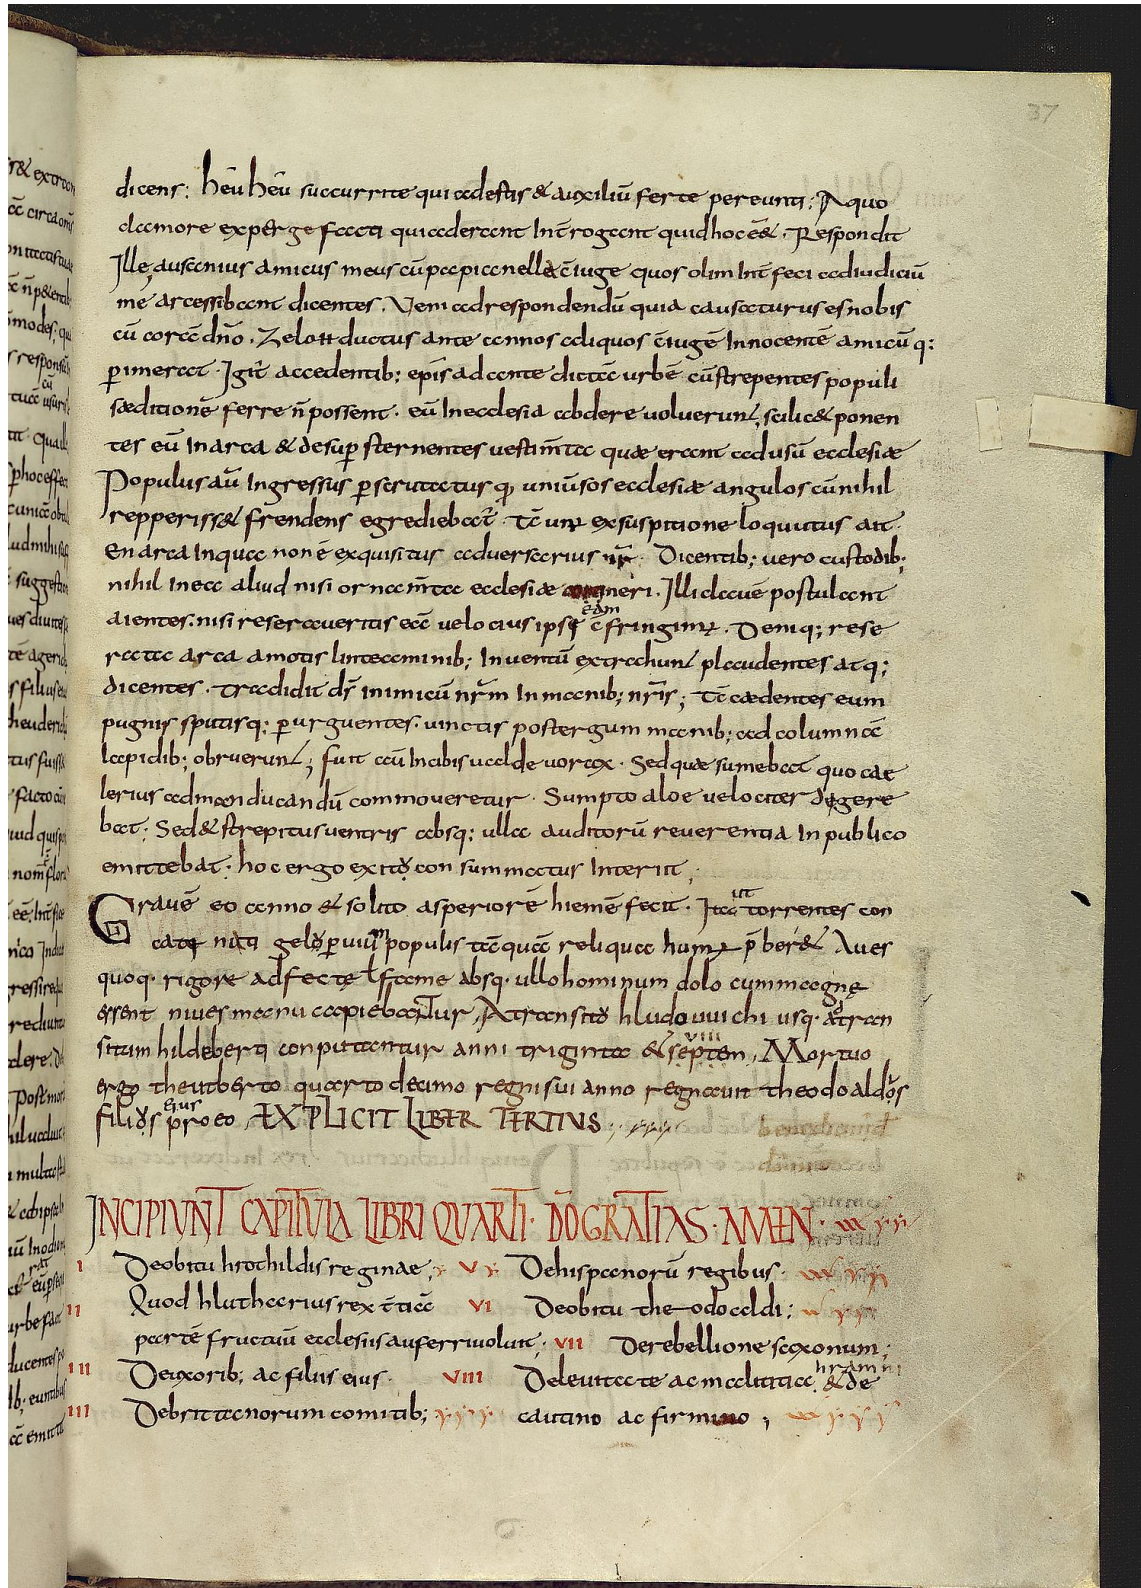 37
dicens: heu heū succurrite qui adestis & auxiliū ferte pereunti; A quo
clamore expergefacti qui aderant Int̄rogant quid hoc ēet. Respondit
Ille, ausanius amicus meus cū papianella c̄iuge quos olim Int̄feci ad iudiciū
me arcessibant dicentes. Veni ad respondendū quia causaturus es nobis
cū corā dn̄o. Zeloti ductus ante annos aliquos c̄iugē Innocentē amicūq:
p̄imerat. Igit̄ accedentib; ep̄is ad ante dictā urbē cū strepentes populi
sæditionē ferre n̄ possent. eū In ecclesia abdere uoluerunt, scilic& ponen
tes eū In arca & desup̄ sternentes uestim̄ta quæ erant ad usū ecclesiæ
Populus aū Ingressus p̄scrutatusq; uniūsos ecclesiæ angulos cū nihil
repperiss& frendens egrediebat̄. Tc̄ unꝰ ex suspitione loquutus ait.
En arca In qua non ē exquisitus aduersarius nr̄. Dicentib; uero custodib;
nihil In ea aliud nisi ornam̄ta ecclesiæ contineri. Illi clauē postulant
aientes. nisi reseraueritis eā uelocius ipsi c̄fringimꝰ. Deniq; rese
eam
rata arca amotis linteaminib; Inuentū extrahunt plaudentes atq;
dicentes. Tradidit ds̄ inimicū nr̄m In manib; nr̄is; Tc̄ cædentes eum
pugnis sputisq; p̄urguentes. uinctis postergum manib; ad columnā
lapidib; obruerunt; fuit aū In cibis ualde uorax. Sed quæ sumebat quo cæ
lerius ad manducandū commoueretur. Sumpto aloe uelociter degere
bat: Sed & strepitus uentris absq; ulla auditorū reuerentia In publico
emittebat. hoc ergo exitu consummatus Interiit;
Grauē eo anno & solito asperiorē hiemē fecit. Ita ut torrentes con
cati niui gelu p̄uiū populis tāquā reliqua humꝰ p̄ber& Aues
quoq. rigore adfectę ł fame absq. ullo hominum dolo cum magnę
essent niues manu capiebantur, A transitu hludouuichi usq. a tran
situm hildeberti conputantur anni triginta & septem, Mortuo
uiii
ergo theutberto quarto decimo regni sui anno regnauit theodoaldus
filius eius pro eo, EXPLICIT LIBER TERTIUS;
INCIPIUNT CAPITULA LIBRI QUARTI. DŌ GRATIAS. AMEN.
I De obitu hrothildis reginae; V De hispanorū regibus.
II Quod hlutharius rex t̄tiā VI De obitu theodoaldi:
partē fructuū ecclesiis auferri uoluit; VII De rebellione saxonum;
III De uxorib; ac filiis eius. VIII De leuitate ac malitia hramni & de
IIII De brittanorum comitib; cautino ac firmino;